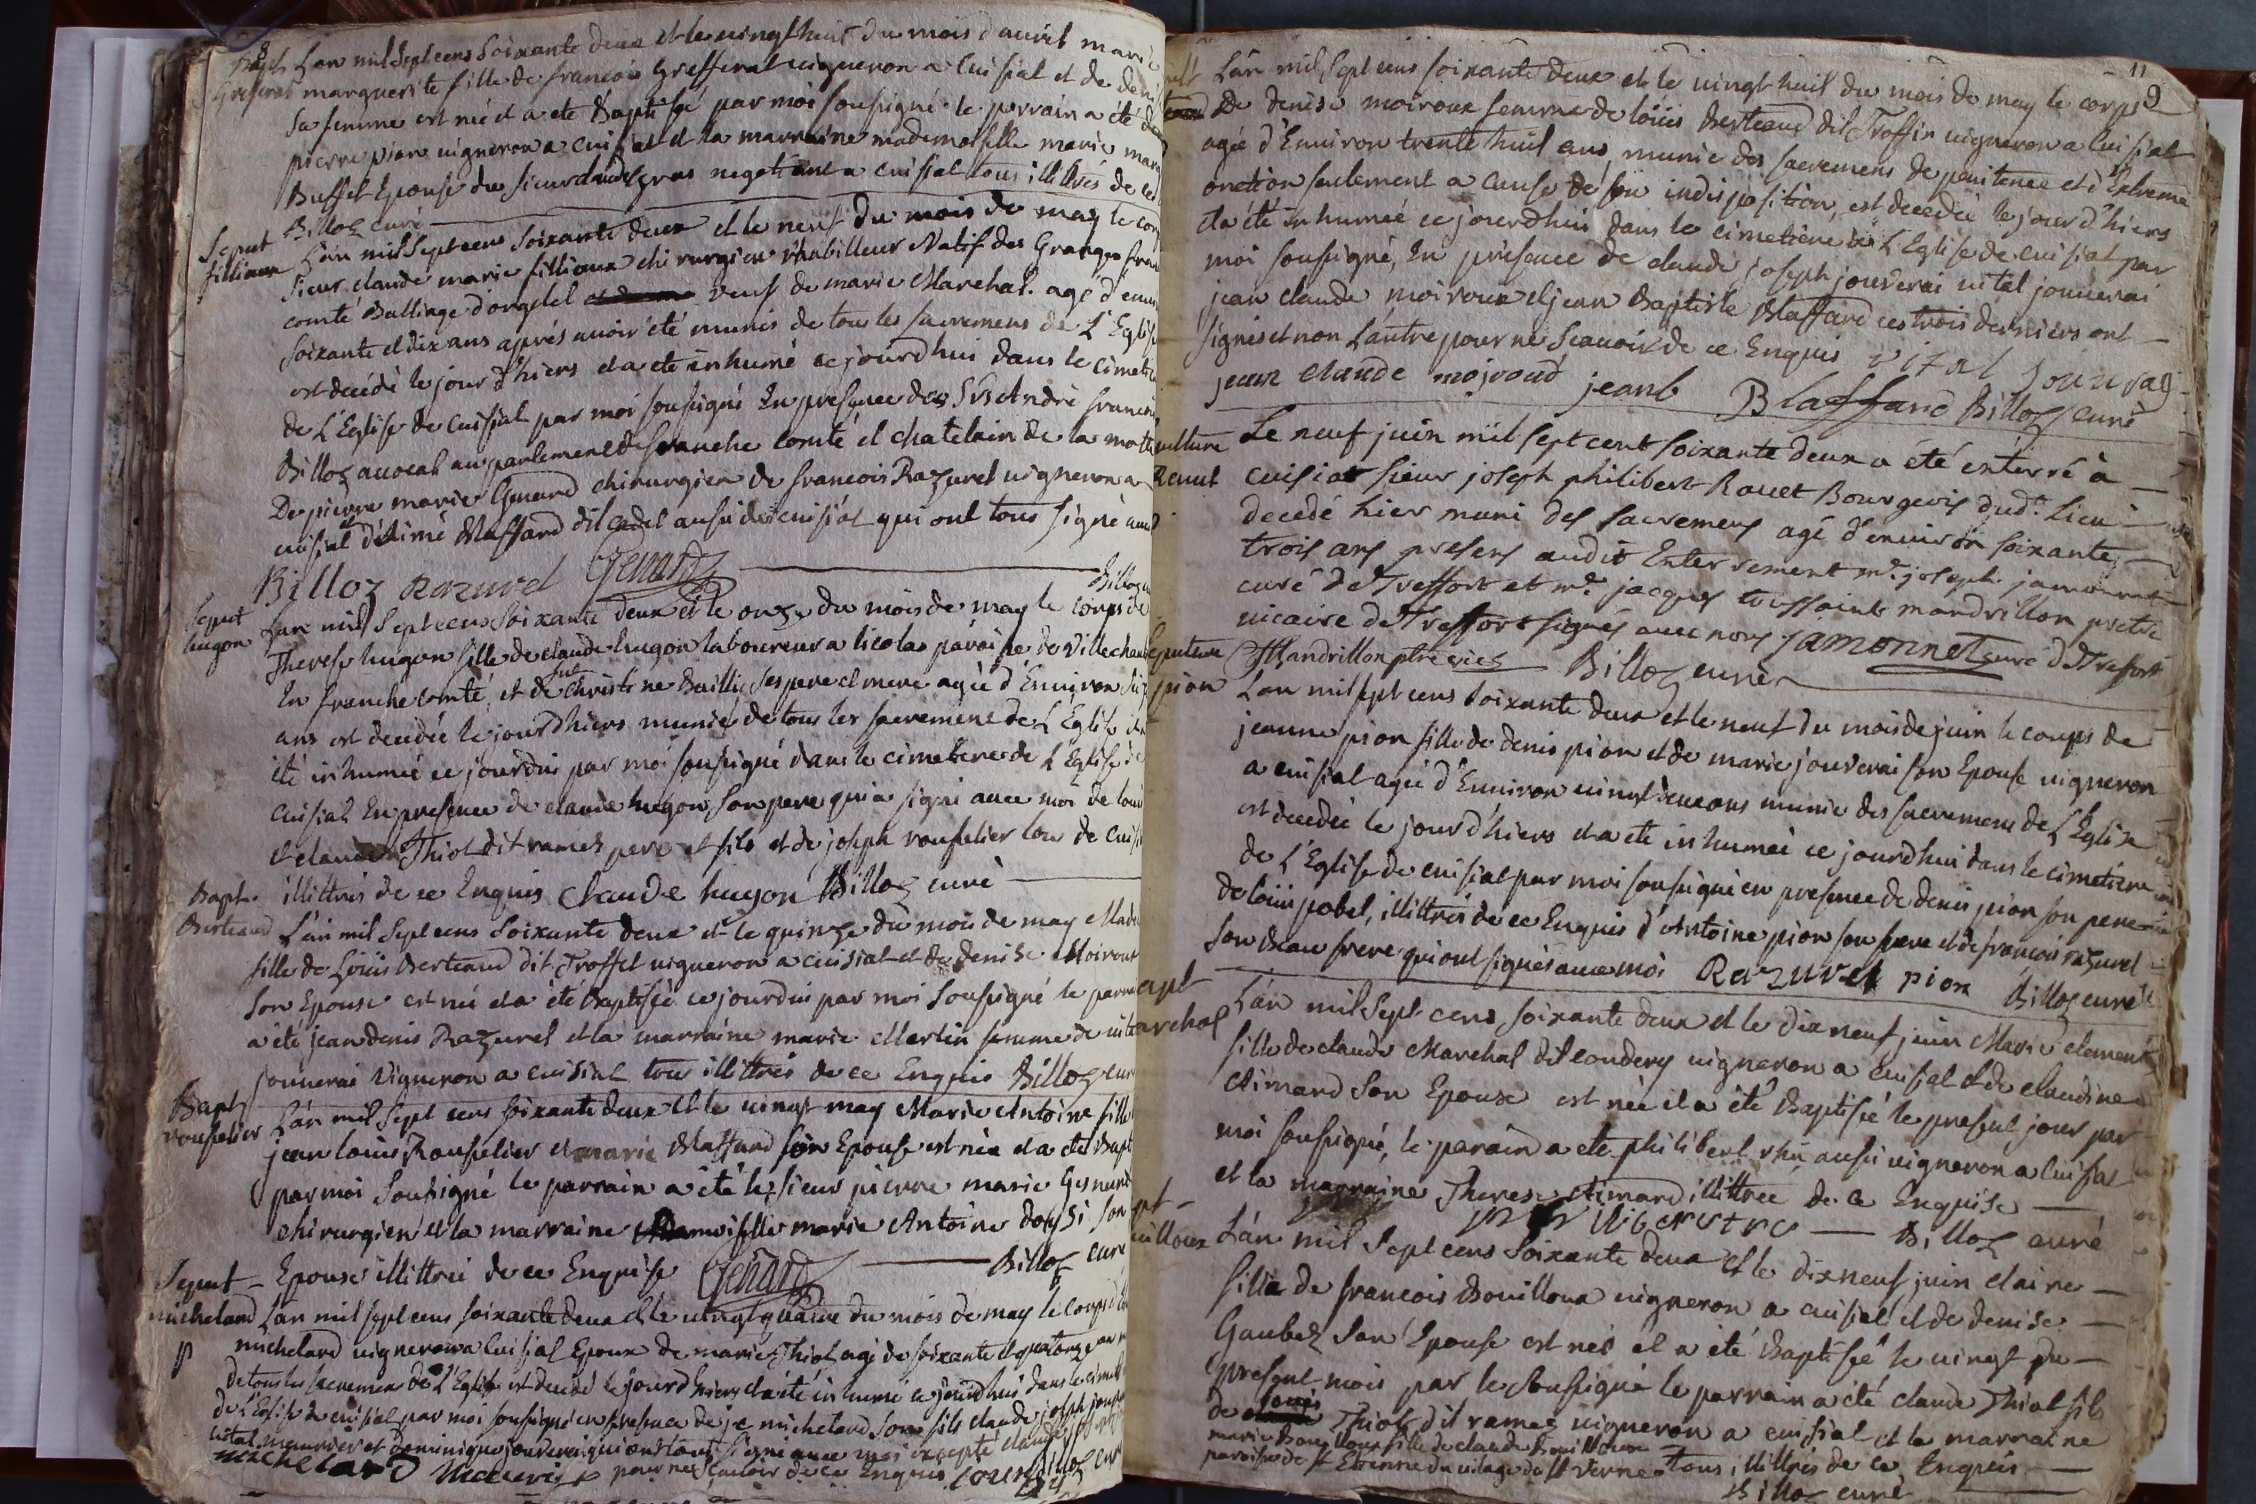 8
Bapt L'an mil Sept cens Soixante deux et le vingt huit du mois d'avril marie
Grefferat marguerite fille de francois Grefferat vigneron a Cuisiat et de deni
Sa femme est née et a eté Baptisée par moi Soussigné le parrain a été
pierre pion vigneron a cuisiat et la marraine mademoiselle marie marg
Buffet Epouse du Sieur gras negotiant a cuisiat tous illitrés de ce
Billoz curé
Sepult L'an mil Sept cens Soixante deux et le neuf du mois de may le corp
fillioux Sieur claude marie fillioux chirurgien rhabilleur Natif des Granges fran
comté Bailliage d'orgelet veuf de marie Marechal agé d'envi
Soixante et dix ans aprés avoir été munis de tous les Sacremens de L'Eglise
est decédé le jour d'hiers et a eté inhumé ce jourd'hui dans le cimeti
de L'Eglise de Cuisiat par moi soussigné En presence des Srs André francois
Billoz avocat au parlement de franche comté et chatelain de la motte
De pierre marie Genard chirurgien de francois Razurel vigneron a
cuisiat d'Aimé Blaffard dit cadet aussi de cuisiat qui ont tous signé avec
Billoz Razurel Genard Billoz cu
Sepult L'an mil Sept cens Soixante deux et le onze du mois de may le corps de
hugon Therese hugon fille de claude hugon laboureur a licolas paroisse de Villechant
En franche comté, et de christine Bailly Ses pere et mere agée d'Environ six
ans est decedée le jour d'hiers munie de tous les sacremens de L'Eglise et a
été inhumée ce jourd'ui par moi soussigné dans le cimetiere de L'Eglise de
Cuisiat En presence de claude hugon Son pere qui a signé avec moi de loui
et claude Thiot dit ramel pere et fils et de joseph rousselier tous de Cuisi
illittrés de ce Enquis Claude hugon Billoz curé
Bapt. L'an mil Sept cens Soixante deux et le quinze du mois de may Made
Berteaud fille de Loüis Berteaud dit Troffet vigneron a cuisiat et de denise Moiroux
Son Epouse est née et a été Baptisée ce jourd'ui par moi Soussigné le parra
a été jean denis Razurel et la marraine marie Martin femme de vit
jouverai Vigneron a cuisiat tous illittrés de ce Enquis Billoz cur
Bapt L'an mil Sept cens soixante deux et le vingt may Marie Antoine fille
rouselier jean louis Rouselier et marie Blaffard son Epouse est née et a eté Bapt
par moi Soussigné le parrain a été le sieur pierre marie Genard
chirurgien et la marraine marie Antoine son
Epouse illittrée de ce Enquise Genard Billoz curé
Sepult L'an mil sept cens soixante deux et le vingt quatre du mois de may le corps d
michelard michelard vigneron a Cuisiat Epoux de marie Thiot agé de soixante et quatorze an
de tous les sacremens de L'Eglise est decédé le jour d'hiers et a été inhumé ce jourd'hui dans le cimeti
de L'Eglise de cuisiat par moi soussigné en presence de michelard son fils claude joseph jouv
vital meurier et dominique jouverai qui ont tous signé avec moi excepté claude
michelard pour ne Scavoir de ce Enquis Billoz cur
11
9
L'an mil Sept cens soixante deux et le vingt huit du mois de may le corps
De denise moiroux femme de loüis Berteaud dit Troffer vigneron a Cuisiat
agée d'Environ trente huit ans munie des sacremens de penitence et d'Extreme
onction seulement a cause de son indisposition, est decedée le jour d'hiers
et a été inhumée ce jourd'hui dans le cimetiere de L'Eglise de cuisiat par
moi soussigné, En présence de claude joseph jouverai vital jouverai
jean claude moiroux et jean Baptiste Blaffard ces trois derniers ont
signés et non L'autre pour ne Scavoir de ce Enquis vital
jean claude jeanb Blaffard Billoz curé
Sepulture Le neuf juin mil sept cent soixante deux a été enterré à
Ravet cuisiat sieur joseph philibert Ravet Bourgeois dud. Lieu
decedé hier muni des sacremens agé d'environ soixante
trois ans presens audit Enterrement mr. joseph jamonnet
curé de Treffort et mr. jacques toussaint mandrillon pretre
vicaire de Treffort signés avec nous Jamonnet curé de Treffort
Mandrillon ptre vic Billoz curé
Sepulture L'an mil sept cens soixante deux et le neuf du mois de juin le corps de
pion jeanne pion fille de denis pion et de marie jouverai son Epouse vigneron
a cuisiat agée d'Environ vingt deux ans munie des sacremens de L'Eglise
est decedée le jour d'hiers et a eté inhumée ce jourd'hui dans le cimetiere
de L'Eglise de cuisiat par moi soussigné en presence de denis pion son pere
de loüis pobel, illittrés de ce Enquis d'Antoine pion son frere et de francois razurel
Son Beau frere qui ont signés avec moi Razurel pion Billoz curé
Bapt L'an mil Sept cens soixante deux et le dix neuf juin Marie clement
Marchal fille de claude Marechal dit vigneron a Cuisiat et de claudine
Aimard Son Epouse est née et a été Baptisée le present jour par
moi soussigné, le parain a eté philibert aussi vigneron a Cuisiat
et la marraine Therese Aimard illittrée de ce Enquise
Billoz curé
L'an mil Sept cens Soixante deux et le dix neuf juin claire
fille de francois Bouilloux vigneron a cuisiat et de denise
Gaubet Son Epouse est née et a été Baptisée le vingt du
present mois par le soussigné le parrain a été claude Thiot fils
de louis Thiot dit ramel vigneron a cuisiat et la marraine
marie Bouilloux fille de claude Bouilloux
paroisse de St Etienne du vilage de tous illittrés de ce Enquis
Billoz curé